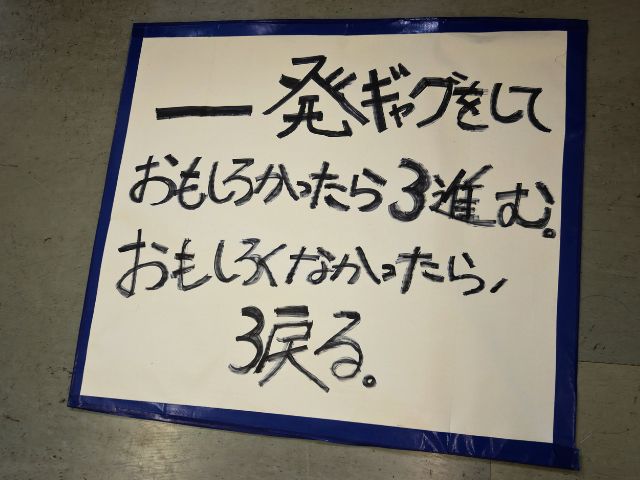 一発ギャグをして
おもしろかったら3進む。
おもしろくなかったら、
3戻る。